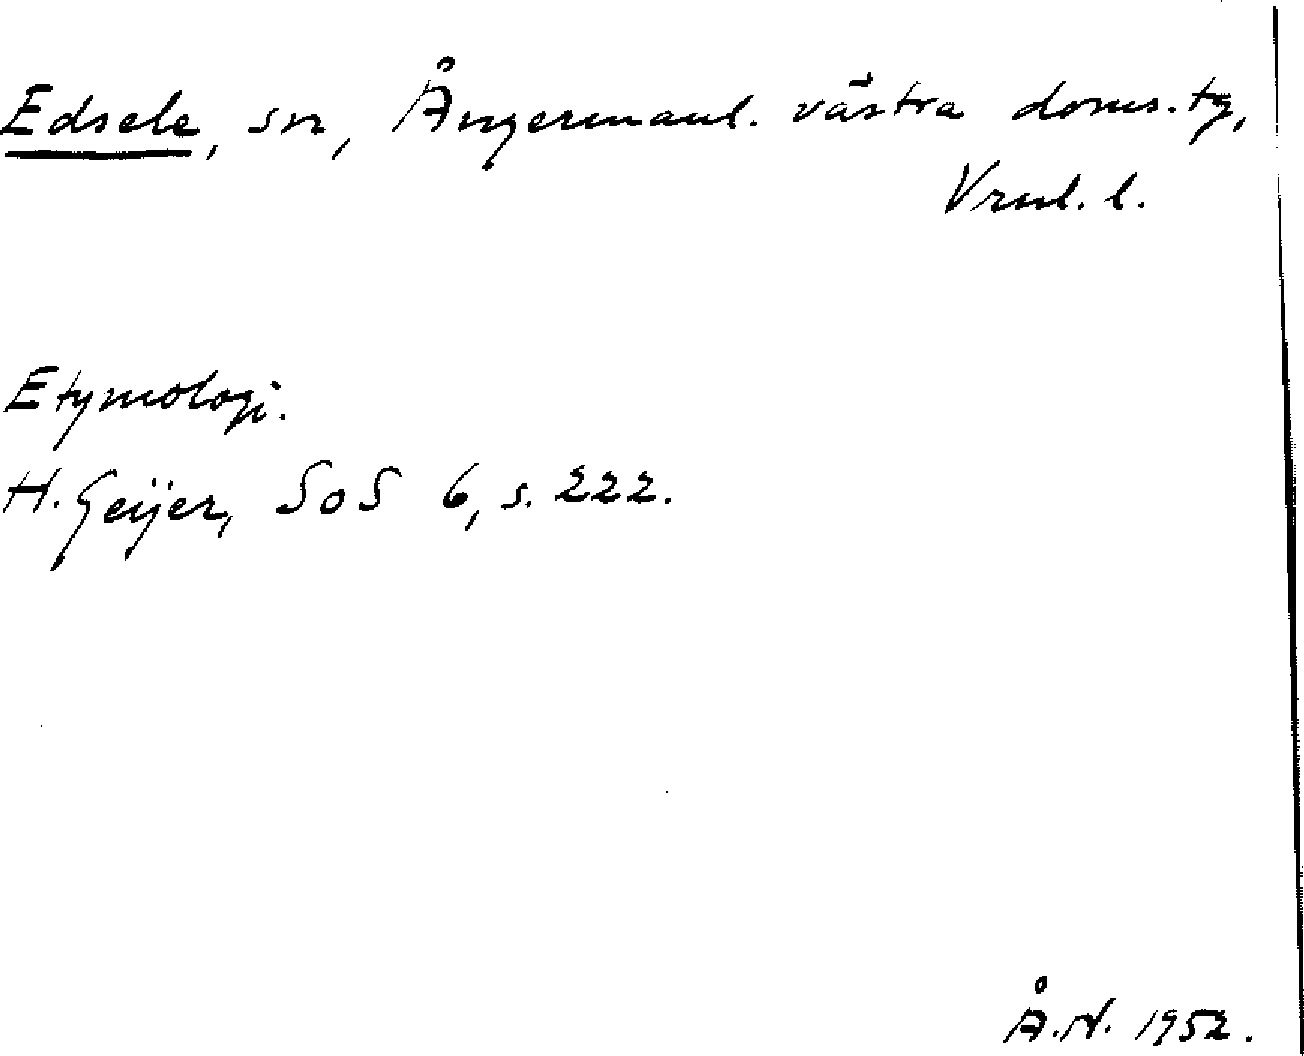 Edsele, sn, Ångermanl. västra doms.tg,
Vrnl. l.
Etymologi.
H. Geijer, SoS 6, s. 222.
Å.N. 1952.